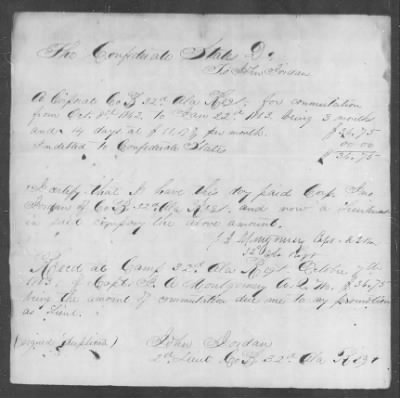 The Confederate States Dr
To John Jordan
A Corporal Co 32d Ala Regt. for commutation
from Oct. 8th 1862 to Jany 22d 1863 being 3 months
and 14 days at $ per month. $36.75
Indebted to Confederate States 00.00
$36.75
I certify that I have this day paid Corp. Jno
Jordan of Co 32d Ala Regt. and now a Lieutenant
in said company the above amount.
Montgomery Capt. &
32d Ala Regt
Recd at Camp 32d Ala Regt October
1863 of Capt. Montgomery A.Q.M. $36.75
being the amount of commutation due me to my promotion
as Lieut.
(signed duplicate) John Jordan
2d Lieut Co 32d Ala Regt